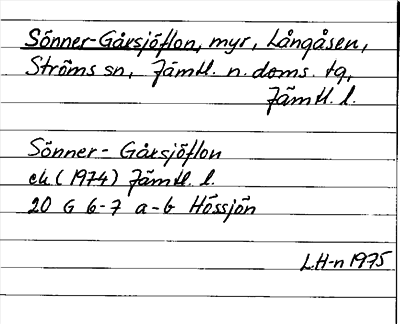 Sönner-Gårsjöflon, myr, Långåsen,
Ströms sn, Jämtl. n. doms. tg,
Jämtl. l.
Sönner-Gårsjöflon
ek. (1974) Jämtl. l.
20 G 6-7 a-b Hössjön
L.H-n 1975